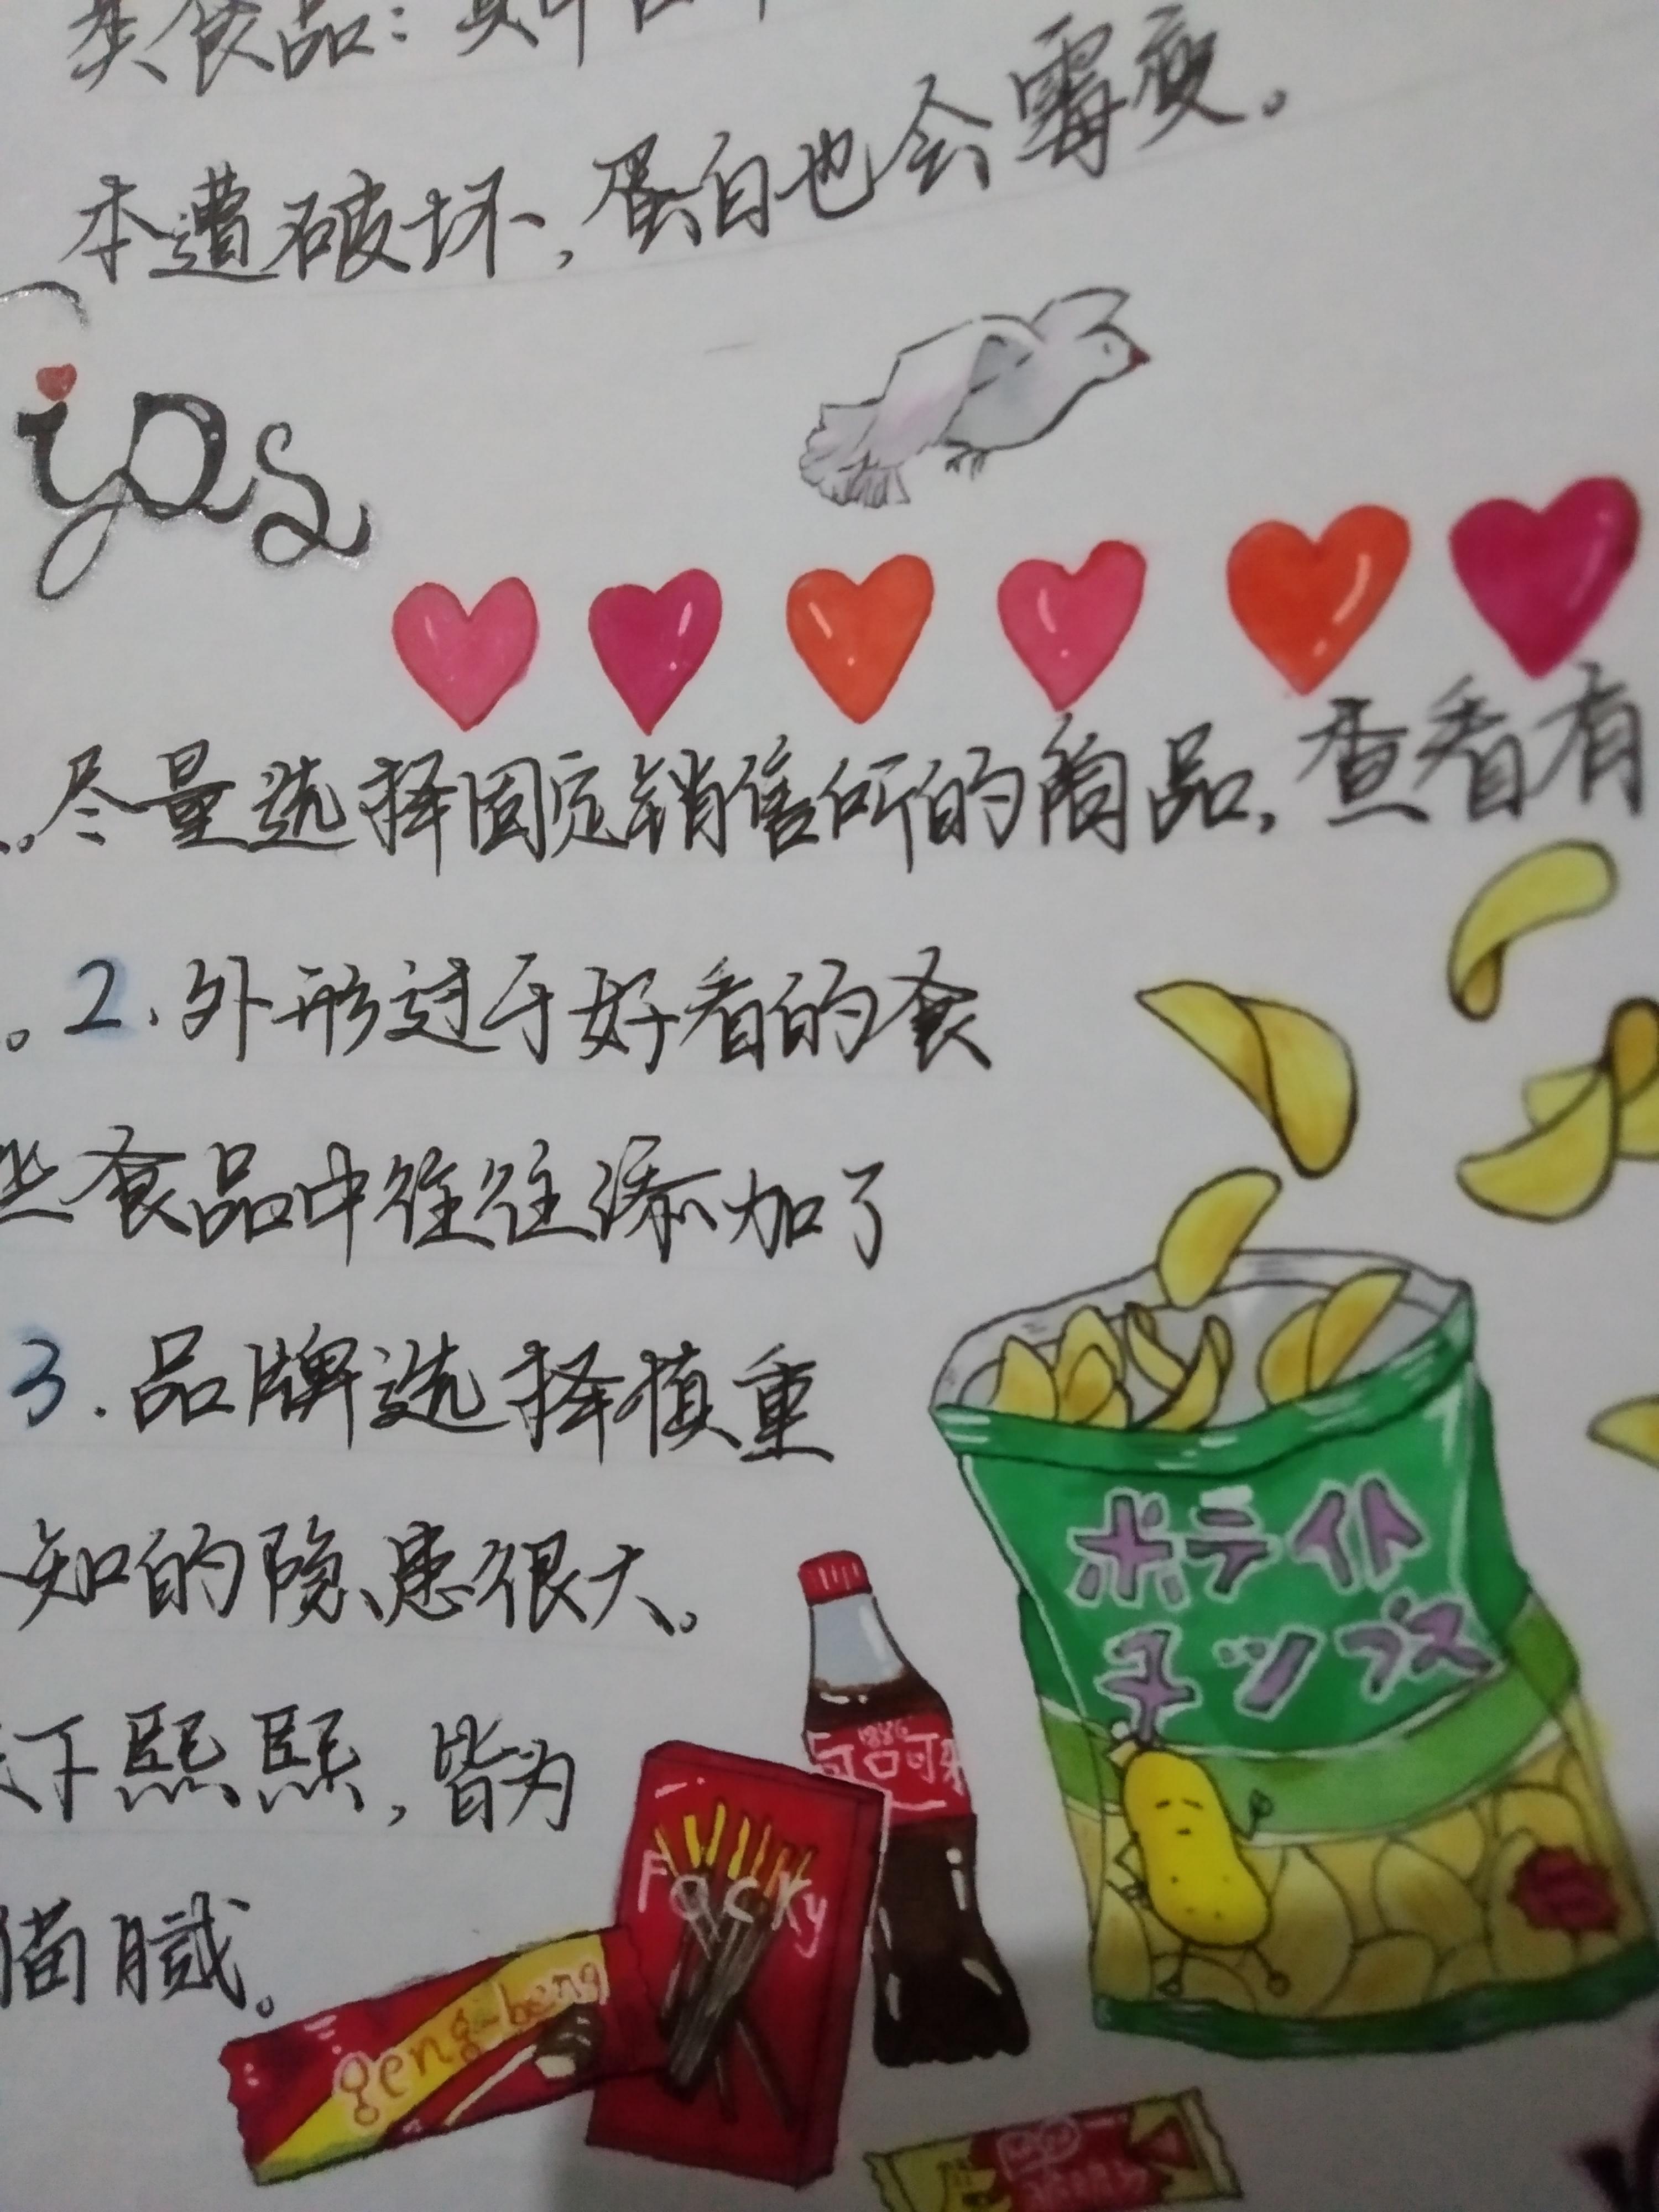 类食品：其中
本遭破坏，蛋白也会霉变。
ips
尽量选择固定销售所的商品，查看有
。2.外形过于好看的食
些食品中往往添加了
3.品牌选择慎重
知的隐患很大。
下熙熙，皆为
猫腻。
ポテイト
チップス
1886
可口可
Pocky
geng-beng